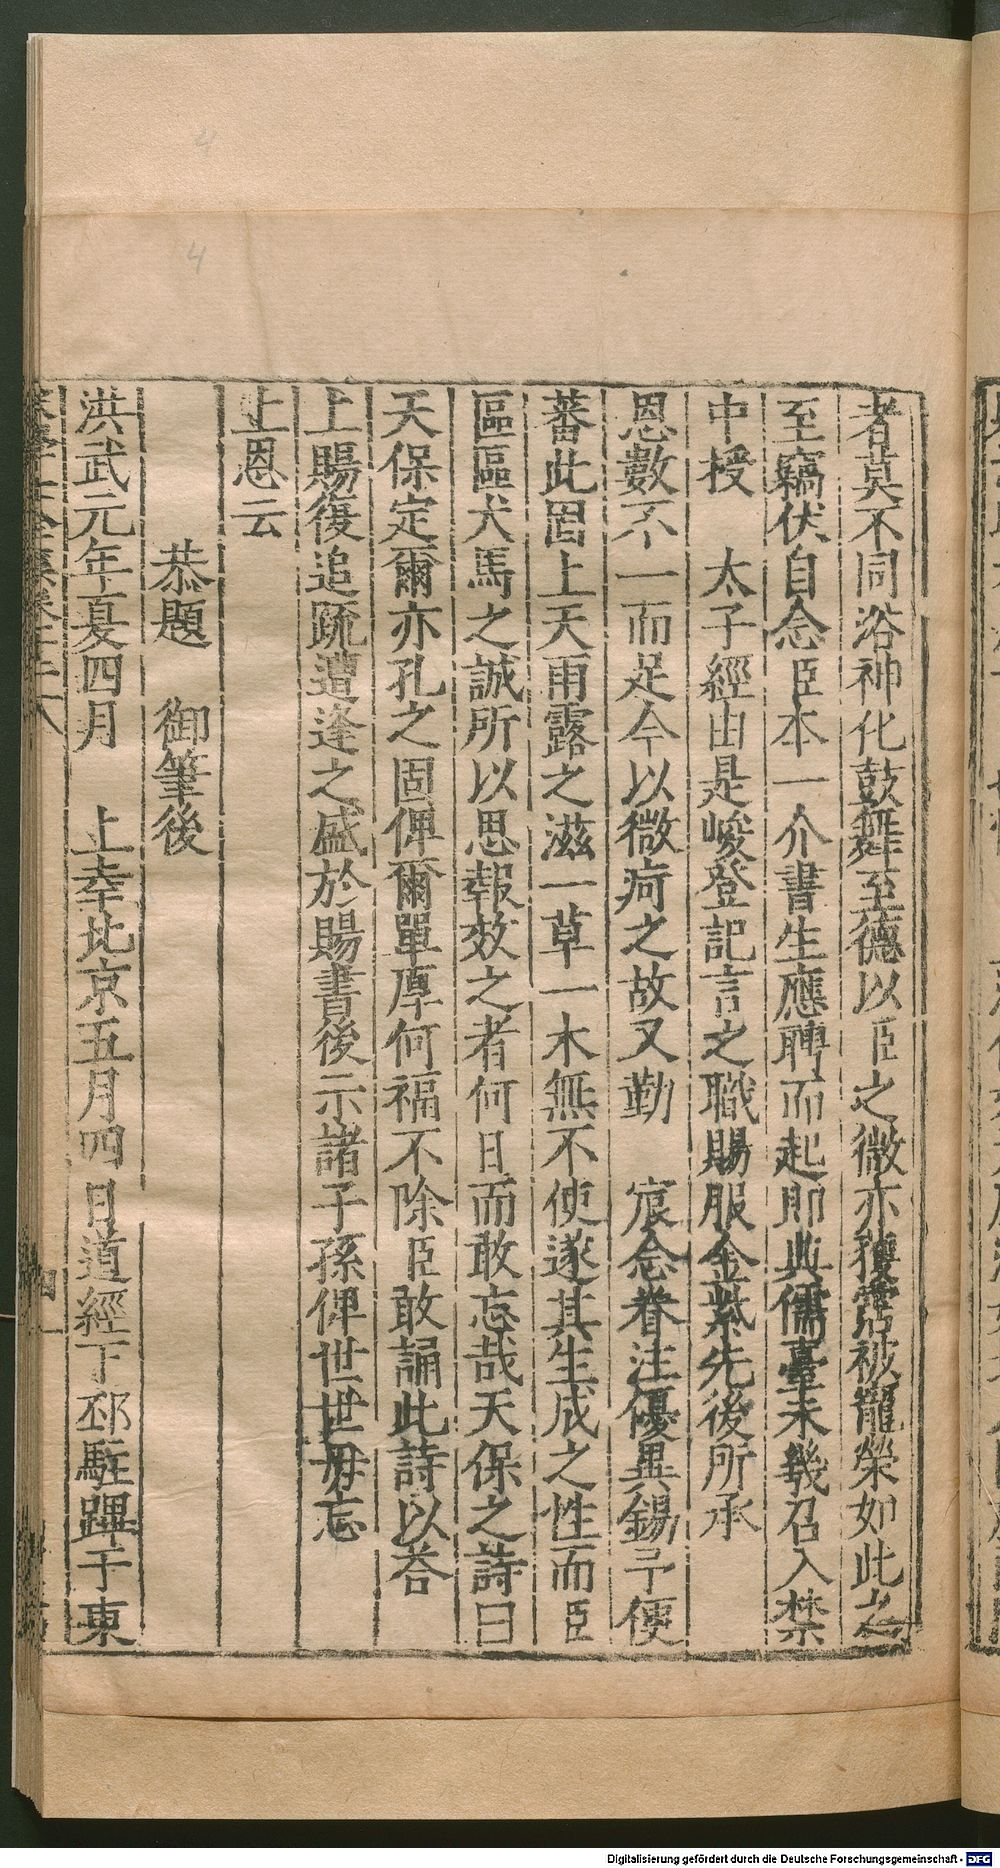 者莫不同浴神化鼓舞至德以臣之微亦獲霑被寵榮如此之
至竊伏自念臣本一介書生應聘而起即典儒臺未幾召入禁
中授　太子經由是峻登記言之職賜服金紫先後所承
恩數不一而足今以微疴之故又勤　宸念眷注優異錫予便
蕃此固上天雨露之滋一草一木無不使遂其生成之性而臣
區區犬馬之誠所以思報效之者何日而敢忘哉天保之詩曰
天保定爾亦孔之固俾爾單厚何福不除臣敢誦此詩以荅
上賜復追疏遭逢之盛於賜書後示諸子孫俾世世毋忘
上恩云
恭題　御筆後
洪武元年夏四月　上幸北京五月四日道經下邳駐蹕于東
4
4
Digitalisierung gefördert durch die Deutsche Forschungsgemeinschaft - DFG